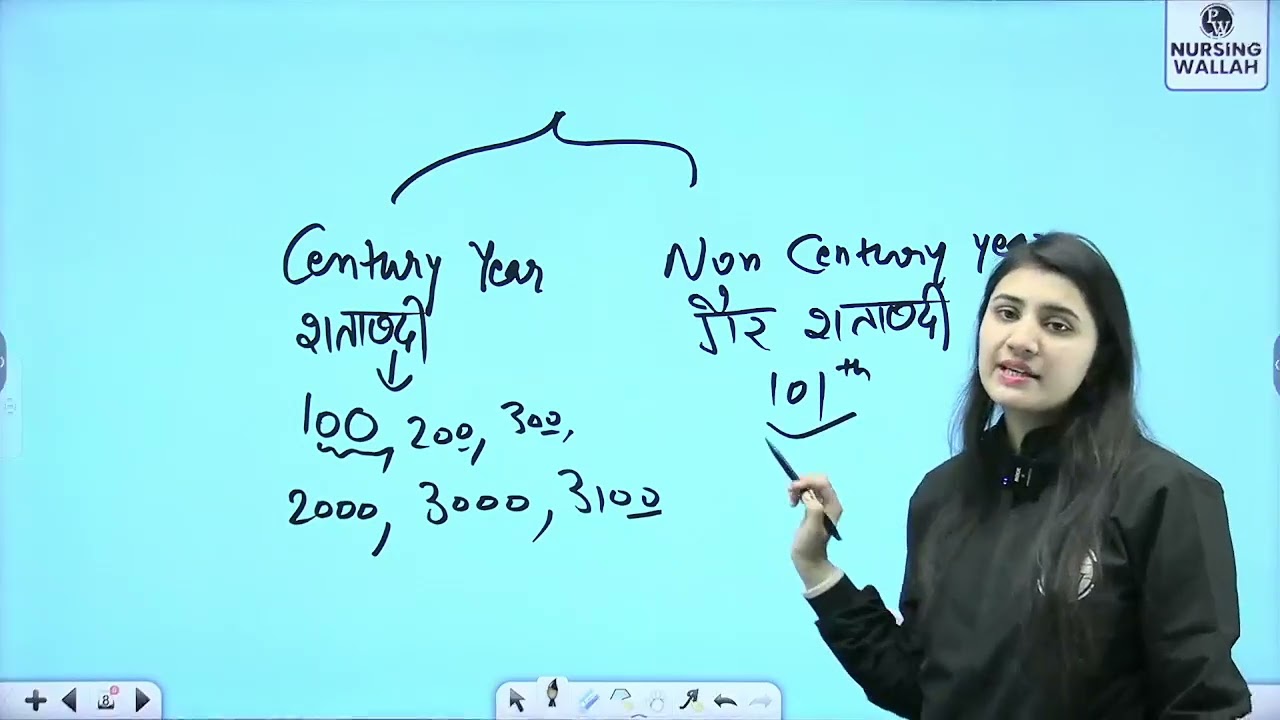 PW
NURSING
WALLAH
Century Year
Non Century year
शताब्दी
गैर शताब्दी
101th
100, 200, 300,
2000, 3000, 3100
8